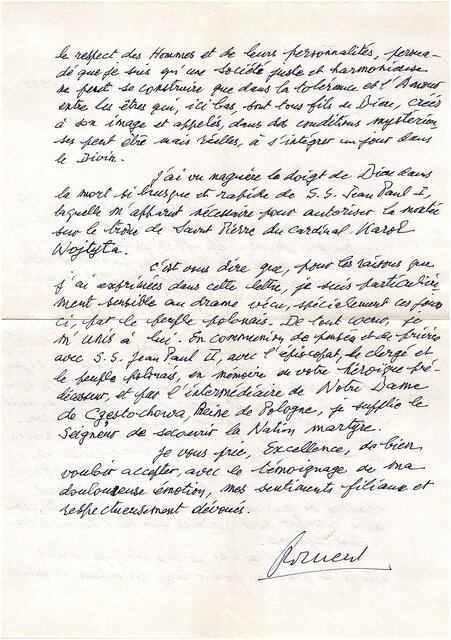 le respect des Hommes et de leurs personnalités, persua-
dé que je suis qu'une société juste et harmonieuse
ne peut se construire que dans la tolérance et l'Amour
entre les êtres qui, ici bas, sont tous fils de Dieu, créés
à son image et appelés, dans des conditions mystérieu-
ses peut être mais réelles, à s'intégrer un jour dans
le Divin.
J'ai vu naguère le doigt de Dieu dans
la mort si brusque et rapide de S.S. Jean Paul I,
laquelle m'apparut nécessaire pour autoriser la montée
sur le trône de Saint Pierre du Cardinal Karol
Wojtyta.
C'est vous dire que, pour les raisons que
j'ai exprimées dans cette lettre, je suis particulière-
ment sensible au drame vécu, spécialement ces jours
ci, par le peuple polonais. De tout coeur, je
m'unis à lui. En communion de pensées et de prières
avec S.S. Jean Paul II, avec l'épiscopat, le clergé et
le peuple Polonais, en mémoire de votre héroïque pré-
décesseur, et par l'intermédiaire de Notre Dame
de Częstochowa, Reine de Pologne, je supplie le
Seigneur de secourir la Nation martyre.
Je vous prie, Excellence, de bien
vouloir accepter, avec le témoignage de ma
douloureuse émotion, mes sentiments filiaux et
respectueusement dévoués.